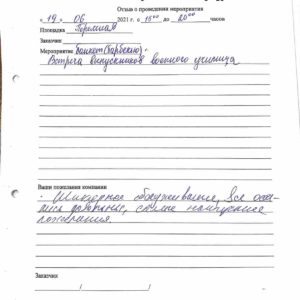 Отзыв о проведении мероприятия
« 19 » 06 2021 г. с 15 00 до 20 00 часов
Площадка
Заказчик
Мероприятие Банкет (барбекю).
Встреча выпускников военного училища
Ваши пожелания компании
- Шикарное обслуживание, все оста-
лись довольны, самые наилучшие
пожелания.
Заказчик
/ /